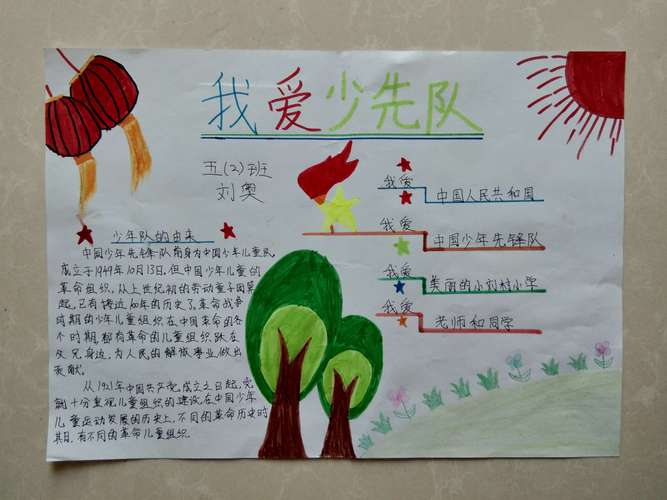 我爱少先队
五(2)班
刘奥
少年队的由来
中国少年先锋队前身为中国少年儿童队
成立于1949年10月13日.但中国少年儿童的
革命组织,从上世纪初的劳动童子团算
起,已有将近100年的历史了.革命战争
时期的少年儿童组织在中国革命的各
个时期,都有革命的儿童组织跃在
父兄身边,为人民的解放事业,做出
贡献.
从1921年中国共产党成立之日起,党
就十分重视儿童组织的建设,在中国少年
儿童运动发展的历史上,不同的革命历史时
其月,有不同的革命儿童组织.
我爱
中国人民共和国
我爱
中国少年先锋队
我爱
美丽的小刘村小学
我爱
老师和同学